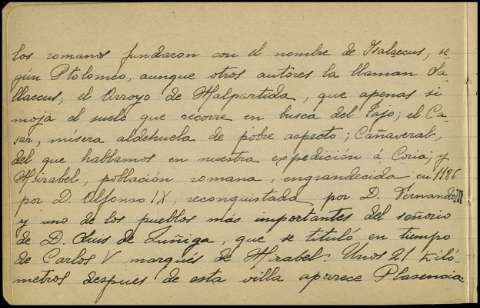 los romanos fundaron con el nombre de Isalaecus, se-
gún Ptolomeo, aunque otros autores la llaman Sa-
llaecus; el Arroyo de Malpartida, que apenas si
moja el suelo que recorre en busca del Tajo; el Ca-
sar, mísera aldehuela de pobre aspecto; Cañaveral,
del que hablamos en nuestra expedición á Coria; y
Mirabel, población romana, engrandecida en 1186
por D. Alfonso IX, reconquistada por D. Fernando III
y uno de los pueblos más importantes del señorio
de D. Luis de Zuñiga, que se tituló en tiempo
de Carlos V marqués de Mirabel. Unos 21 kiló-
metros despues de esta villa aparece Plasencia